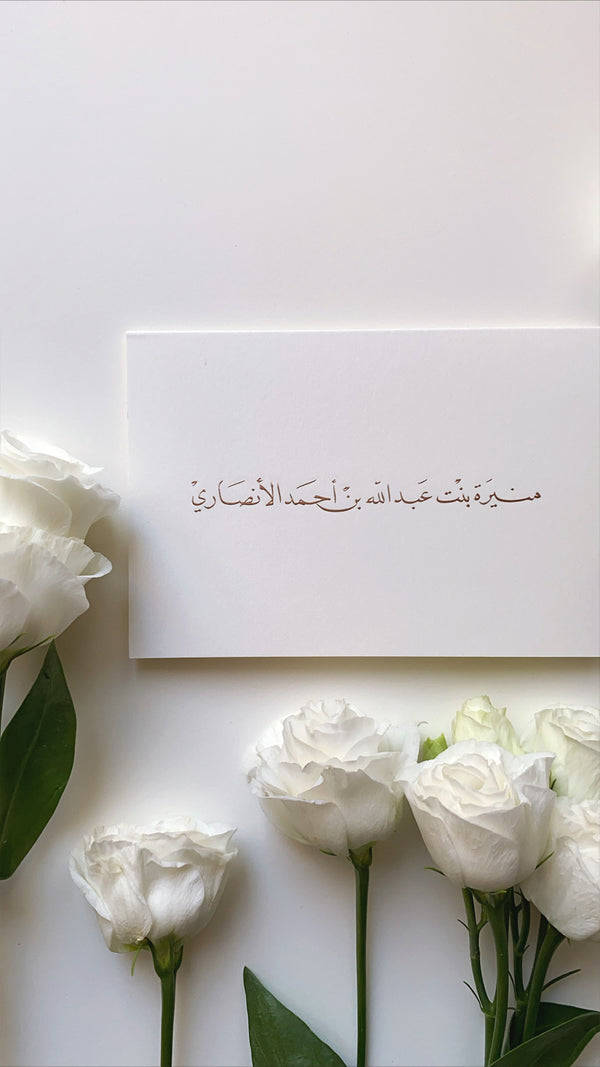 منيَرة بنْت عَبد الله بنْ أحمَد الأنصَاريْ